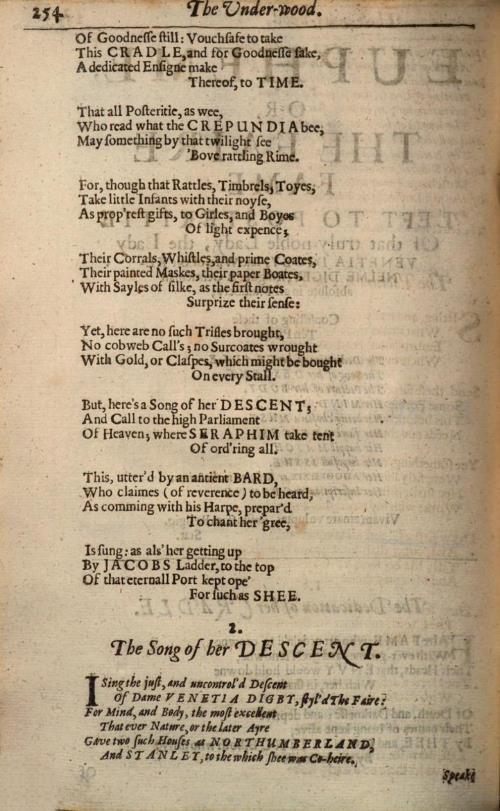 254 The Under-wood.
Of Goodnesse still: Vouchsafe to take
This CRADLE, and for Goodnesse sake,
A dedicated Ensigne make
Thereof, to TIME.
That all Posteritie, as wee,
Who read what the CREPUNDIA bee,
May something by that twilight see
'Bove rattling Rime.
For, though that Rattles, Timbrels, Toyes,
Take little Infants with their noyse,
As prop'rest gifts, to Girles, and Boyes
Of light expence;
Their Corrals, Whistles, and prime Coates,
Their painted Maskes, their paper Boates,
With Sayles of silke, as the first notes
Surprize their sense:
Yet, here are no such Trifles brought,
No cobweb Call's; no Surcoates wrought
With Gold, or Claspes, which might be bought
On every Stall.
But, here's a Song of her DESCENT;
And Call to the high Parliament
Of Heaven; where SERAPHIM take tent
Of ord'ring all.
This, utter'd by an antient BARD,
Who claimes (of reverence) to be heard,
As comming with his Harpe, prepar'd
To chant her 'gree,
Is sung: as als' her getting up
By JACOBS Ladder, to the top
Of that eternall Port kept ope'
For such as SHEE.
2.
The Song of her DESCENT.
I Sing the just, and uncontrol'd Descent
Of Dame VENETIA DIGBY, styl'd The Faire:
For Mind, and Body, the most excellent
That ever Nature, or the later Ayre
Gave two such Houses as NORTHUMBERLAND,
And STANLEY, to the which shee was Co-heire.
Speake